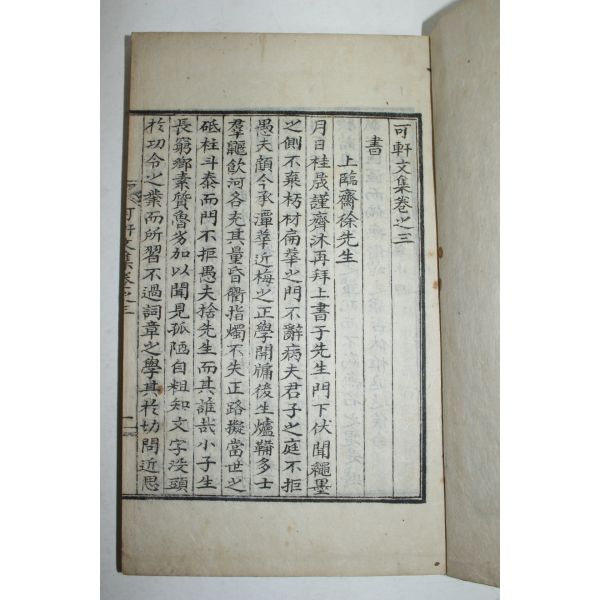 可軒文集卷之三
書
上臨齋徐先生
月日桂晟謹齋沐再拜上書于先生門下伏聞繩墨
之側不棄朽材扁華之門不辭病夫君子之庭不拒
愚夫顧今承潭華近梅之正學開牖後生爐鞴多士
羣飮河各充其量昏衢指燭不失正路擬當世之
砥柱斗泰而門不拒愚夫捨先生而其誰哉小子生
長窮鄕素質魯劣加以聞見孤陋自粗知文字沒頭
於功令之業而所習不過詞章之學其於切問近思
可軒文集卷之三
一